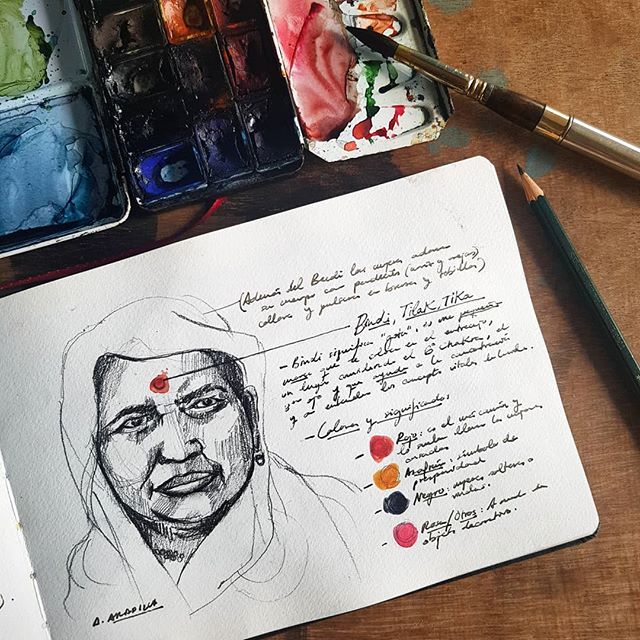 (Además del Bindi las mujeres adornan
su cuerpo con pendientes (nariz y orejas)
collares y pulseras en brazos y tobillos)
Bindi, Tilak, Tika
- Bindi significa "gota", es una
marca que se coloca en el entrecejo,
un lugar considerado el 6º chakra, el
3er ojo y que ayuda a la concentración
y se
- Colores y significados:
Rojo: es el más común y
el suelen llevar las mujeres
casadas
- Azafrán: símbolo de
prosperidad
- Negro: mujeres solteras o
viudas.
- Rosa/Otros: A nivel de
objeto decorativo.